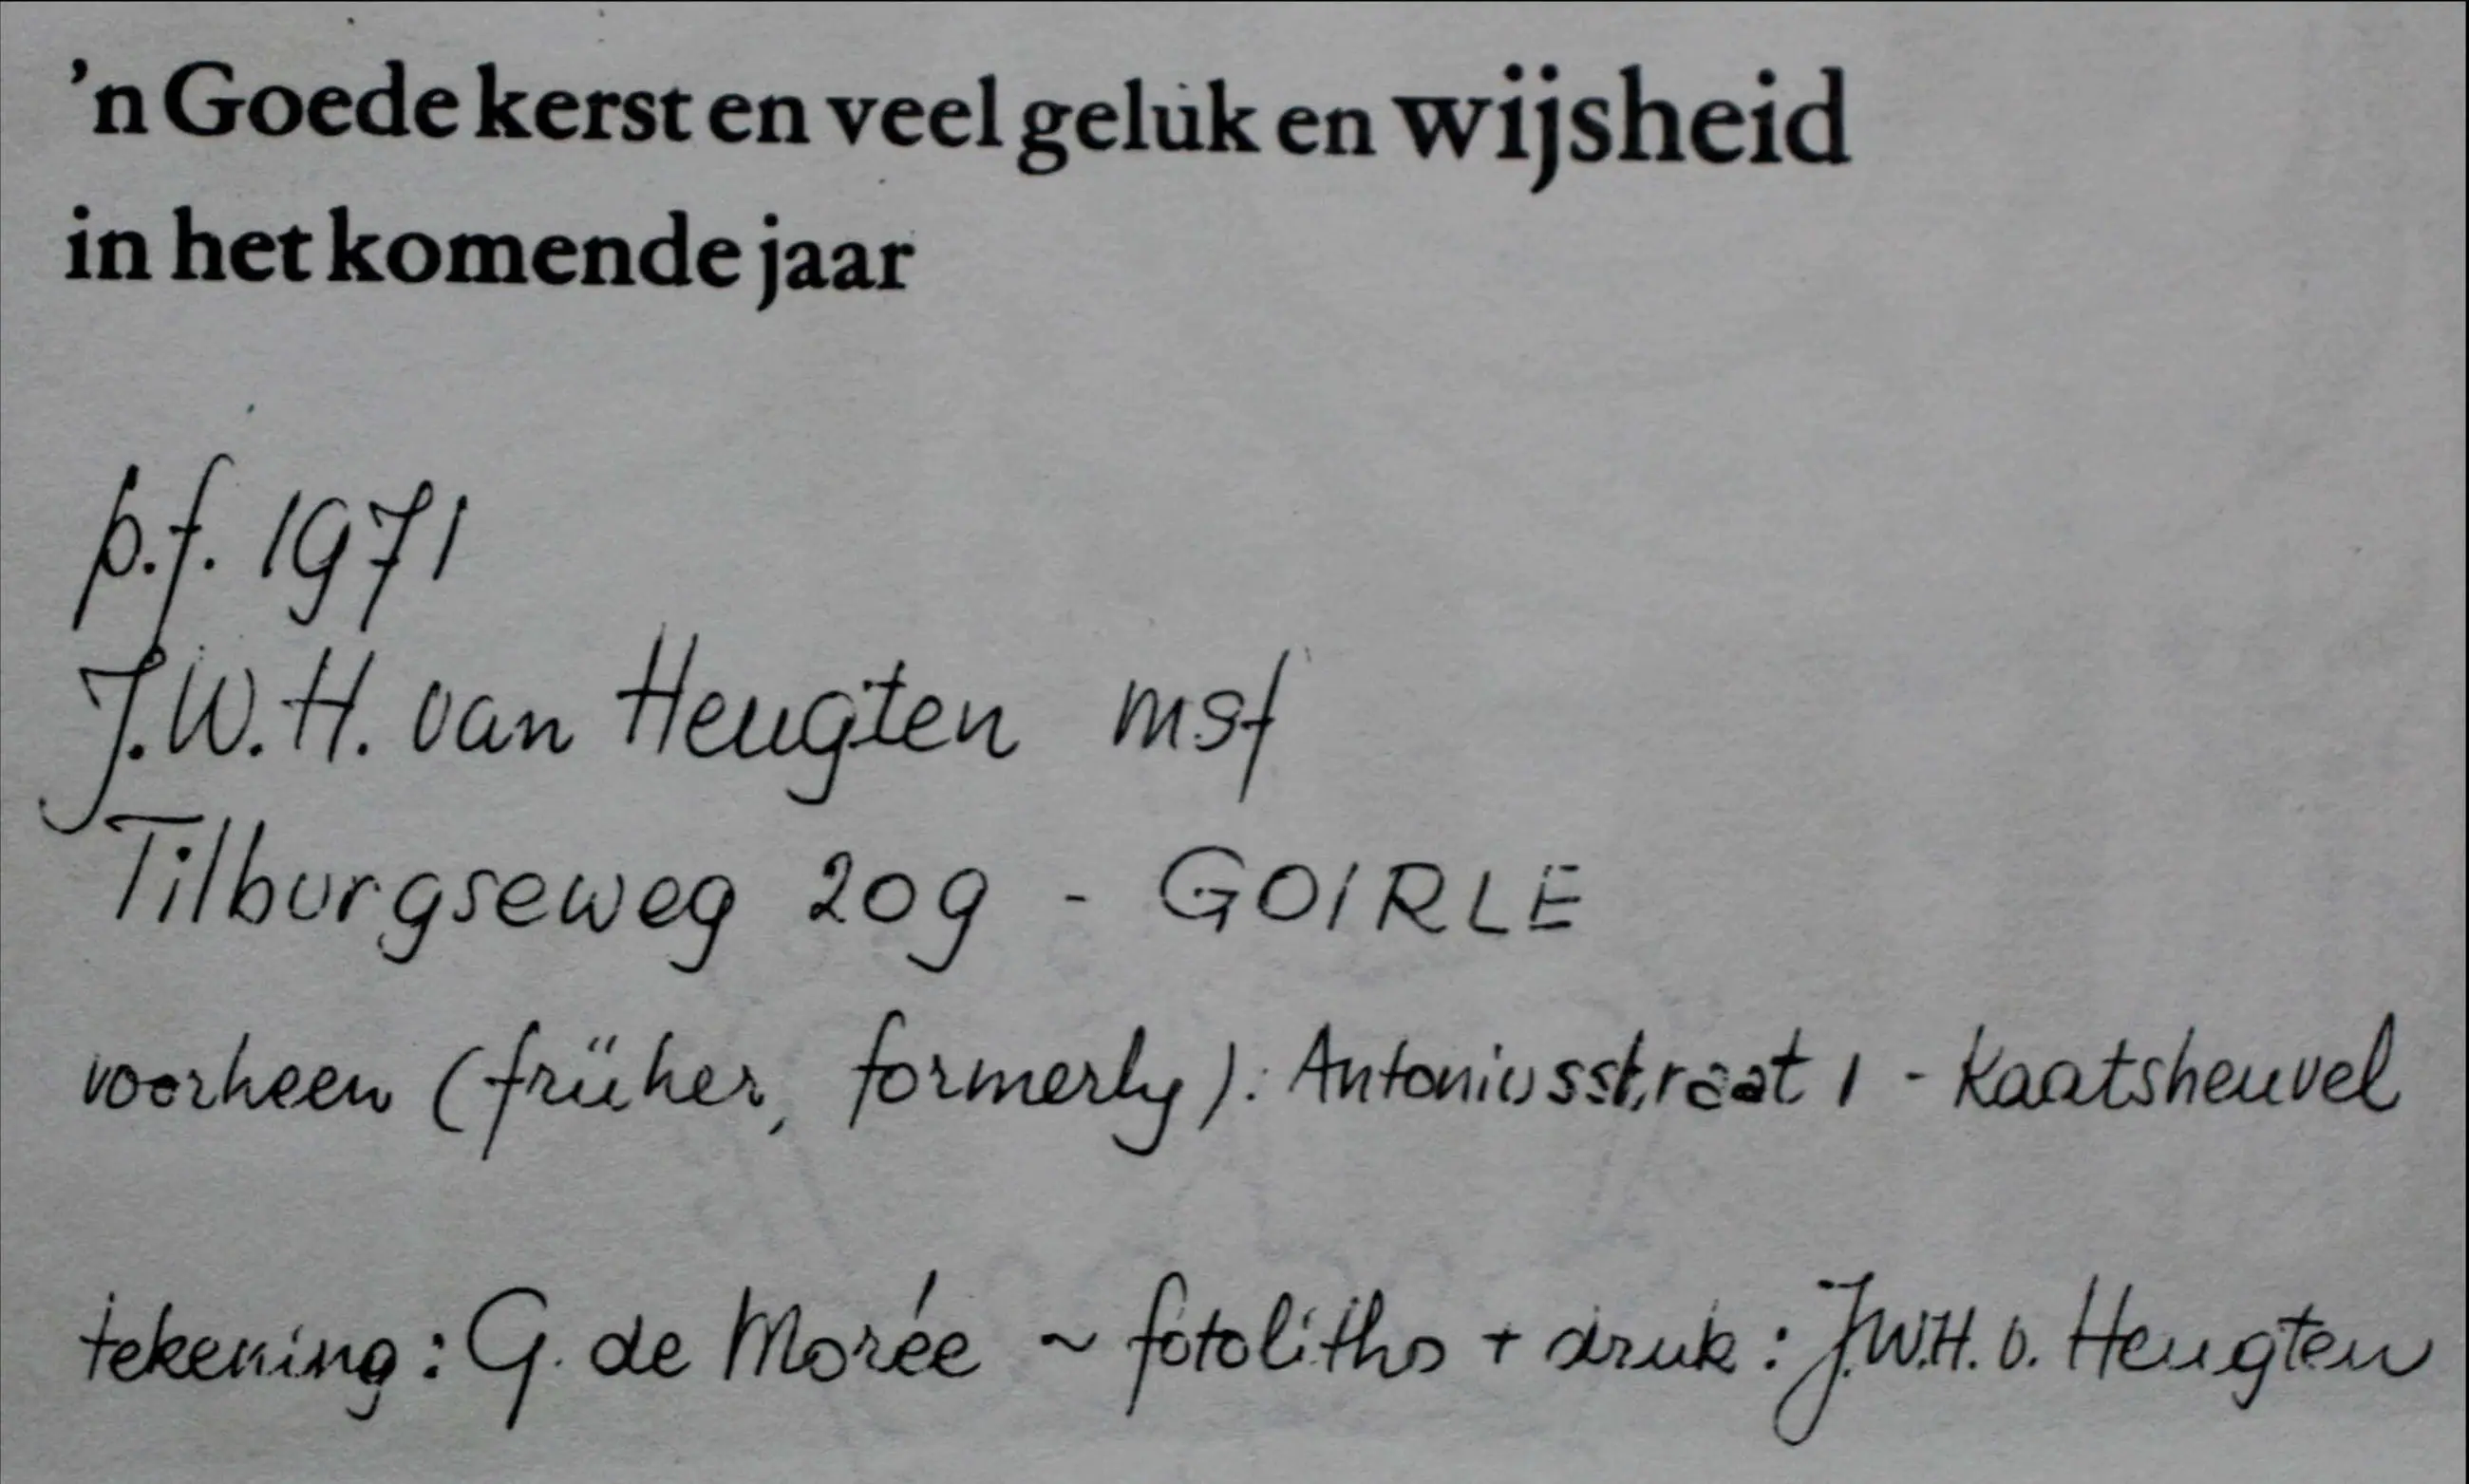 'n Goede kerst en veel geluk en wijsheid
in het komende jaar
p.f. 1971
J.W.H. van Heugten msf
Tilburgseweg 209 - GOIRLE
voorheen (früher, formerly): Antoniusstraat 1 - Kaatsheuvel
tekening: G. de Morée ~ fotoliths + druk: J.W.H. v. Heugten